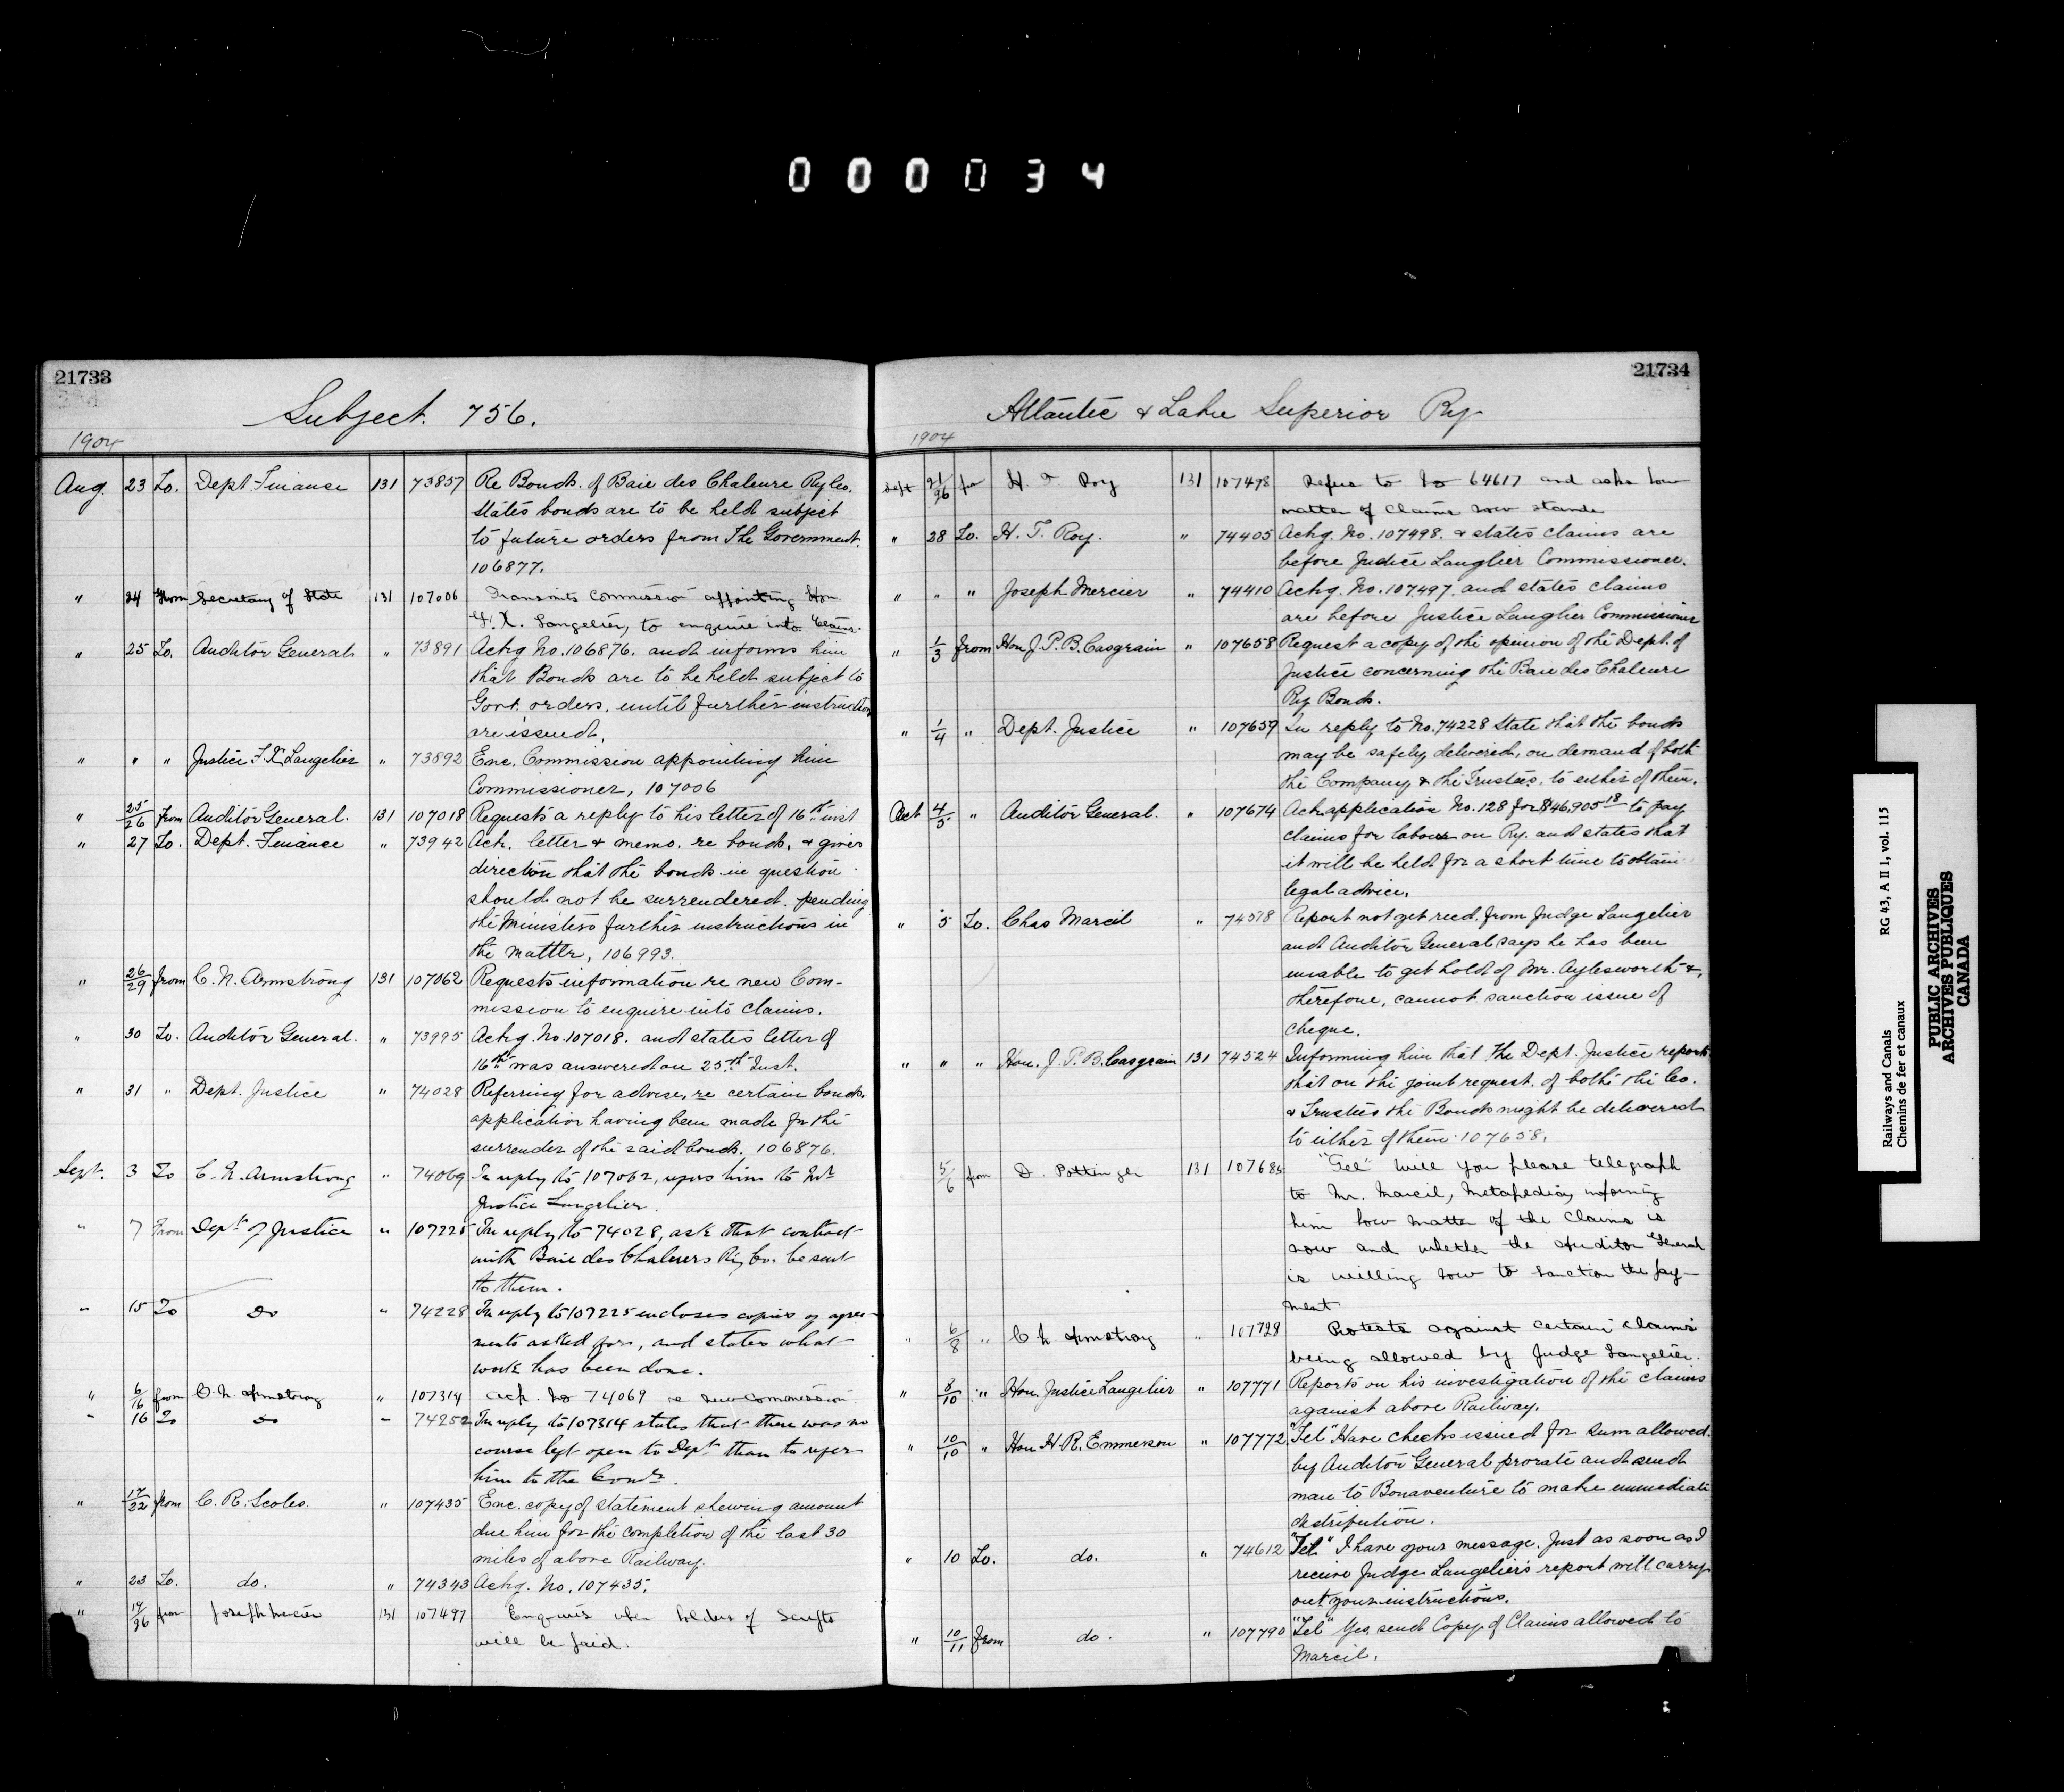 000034
21733
Subject. 756.
1904
Aug. 23 To. Dept Finance 131 73857 Re Bonds. of Baie des Chaleure Ry Co.
States bonds are to be held subject
to future orders from The Government.
106877.
" 24 From Secretary of State 131 107006 Transmits Commission appointing Hon.
F. X. Langelier, to enquire into Claims.
" 25 To. Auditor General " 73891 Ackg No. 106876. and informs him
that Bonds are to be held subject to
Govt. orders, until further instructions
are issued.
" " " Justice F. X. Langelier " 73892 Enc. Commission appointing him
Commissioner, 107006
" 25/26 from Auditor General. 131 107018 Requests a reply to his letter of 16th inst
" 27 To. Dept. Finance " 73942 Ack. letter & memo. re bonds, & gives
direction that the bonds in question
should not be surrendered. pending
the Ministers further instructions in
the matter, 106993.
" 26/29 from C. N. Armstrong 131 107062 Requests information re new Com-
mission to enquire into claims.
" 30 To. Auditor General. " 73995 Ackg No. 107018. and states letter of
16th was answered on 25th Inst.
" 31 " Dept. Justice " 74028 Referring for advise, re certain bonds,
application having been made for the
surrender of the said bonds. 106876.
Sept. 3 To C. N. Armstrong " 74069 In reply to 107062, refers him to Mr
Justice Langelier.
" 7 From Dept of Justice " 107225 In reply to 74028, ask that contract
with Baie des Chaleurs Ry Co. be sent
to them.
" 15 To Do " 74228 In reply to 107225 encloses copies of agree-
ments asked for, and states what
work has been done.
" 6/16 from C. N. Armstrong " 107314 Ack. No 74069 re new Commission
" 16 To Do " 74252 In reply to 107314 states that there was no
course left open to Dept than to refer
him to the Comr.
" 17/22 from C. R. Scoles " 107435 Enc. copy of statement shewing amount
due him for the completion of the last 30
miles of above Railway.
" 23 To. do. " 74343 Ackg. No. 107435.
" 19/26 from Joseph Mercier 131 107497 Enquires when holders of Scripts
will be paid.
21734
Atlantic & Lake Superior Ry
1904
Sept 21/26 fr H. T. Roy 131 107498 Refers to No 64617 and asks how
matter of Claims now stands
" 28 To. H. T. Roy. " 74405 Ackg. No. 107498. & states claims are
before Justice Langlier Commissioner.
" " " Joseph Mercier " 74410 Ackg. No. 107497. and states claims
are before Justice Langlier Commissioner
" 1/3 from Hon J. P. B. Casgrain " 107658 Request a copy of the opinion of the Dept. of
Justice concerning the Baie des Chaleure
Ry Bonds.
" 1/4 " Dept. Justice " 107659 In reply to No. 74228 State that the bonds
may be safely delivered, on demand of both
the Company & the Trustees, to either of them.
Oct 4/5 " Auditor General. " 107674 Ack. application No. 128 for $46,905 18 to pay
claims for labour on Ry. and states that
it will be held for a short time to obtain
legal advice.
" 5 To. Chas Marcil " 74578 Report not yet recd. from Judge Langelier
and Auditor General says he has been
unable to get hold of Mr. Aylesworth &,
therefore, cannot sanction issue of
cheque.
" " " Hon. J. P. B. Casgrain 131 74524 Informing him that the Dept. Justice reports
that on the joint request. of both the Co.
& Trustees the Bonds might be delivered
to either of them. 107658.
5/6 from D. Pottinger 131 107684 "Tel" Will you please telegraph
to Mr. Marcil, Metapedia, informing
him how matter of the Claims is
now and whether the Auditor General
is willing now to sanction the pay-
ment
" 6/8 " C N Armstrong " 107729 Protests against certain claims
being allowed by Judge Langelier.
" 8/10 " Hon. Justice Langelier " 107771 Reports on his investigation of the claims
against above Railway.
" 10/10 " Hon H. R. Emmerson " 107772 "Tel" Have checks issued for sum allowed.
by Auditor General prorate and send
man to Bonaventure to make immediate
distribution.
" 10 To. do. " 74612 "Tel" I have your message. Just as soon as I
receive Judge Langelier's report will carry
out your instructions.
" 10/11 from do. " 107790 "Tel" Yes, send Copy of Claims allowed to
Marcil.
Railways and Canals RG 43, A II 1, vol. 115
Chemins de fer et canaux
PUBLIC ARCHIVES
ARCHIVES PUBLIQUES
CANADA